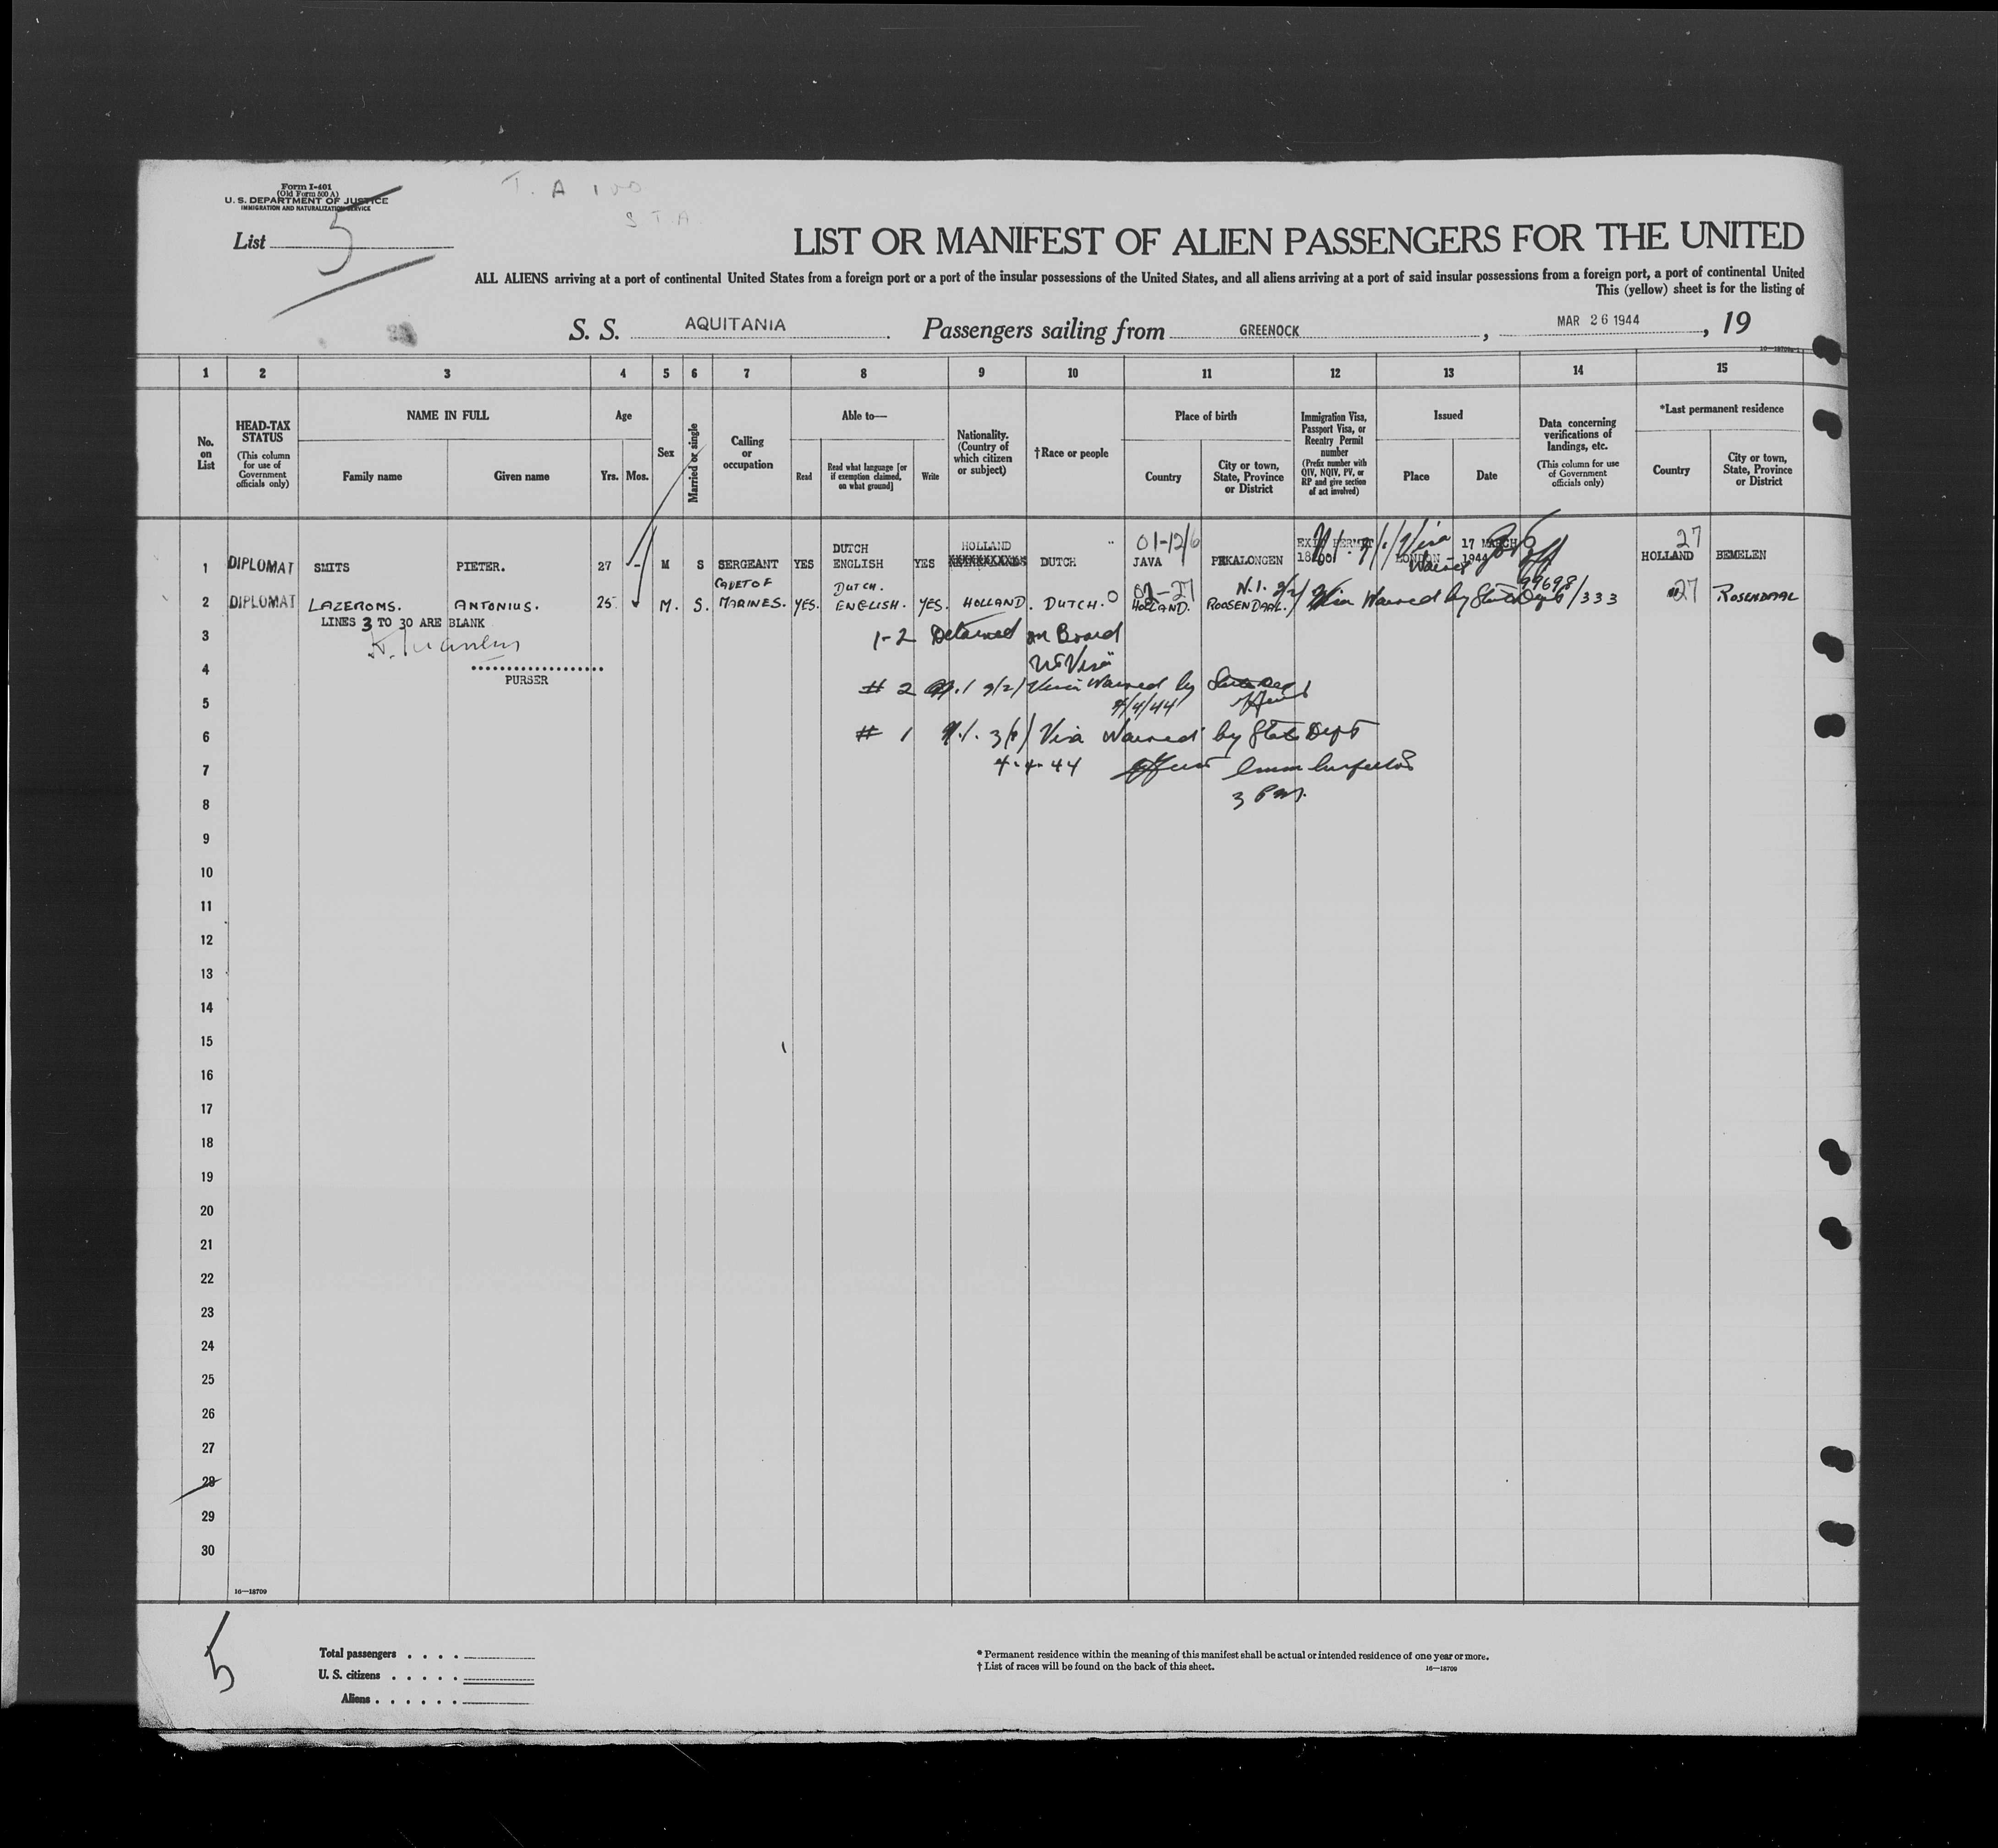 Form I-401
(Old Form 500 A)
U. S. DEPARTMENT OF JUSTICE
IMMIGRATION AND NATURALIZATION SERVICE
T. A 100
S T A
List 5
LIST OR MANIFEST OF ALIEN PASSENGERS FOR THE UNITED
ALL ALIENS arriving at a port of continental United States from a foreign port or a port of the insular possessions of the United States, and all aliens arriving at a port of said insular possessions from a foreign port, a port of continental United
This (yellow) sheet is for the listing of
S. S. AQUITANIA Passengers sailing from GREENOCK, MAR 26 1944, 19
1 2 3 4 5 6 7 8 9 10 11 12 13 14 15
No. on List
HEAD-TAX STATUS (This column for use of Government officials only)
NAME IN FULL
Family name Given name
Age
Yrs. Mos.
Sex
Married or single
Calling or occupation
Able to—
Read
Read what language [or if exemption claimed, on what ground]
Write
Nationality. (Country of which citizen or subject)
†Race or people
Place of birth
Country
City or town, State, Province or District
Immigration Visa, Passport Visa, or Reentry Permit number (Prefix number with QIV, NQIV, PV, or RP and give section of act involved)
Issued
Place Date
Data concerning verifications of landings, etc. (This column for use of Government officials only)
*Last permanent residence
Country
City or town, State, Province or District
DUTCH HOLLAND 01-12/6 EXIT PERMIT Visa 17 MARCH 27
1 DIPLOMAT SMITS PIETER. 27 - M S SERGEANT YES ENGLISH YES DUTCH JAVA PEKALONGEN LONDON - 1944 HOLLAND BEMELEN
Waived
CADET OF DUTCH. 01-27 N.I. 99698/333
2 DIPLOMAT LAZEROMS. ANTONIUS. 25. M. S. MARINES. YES. ENGLISH. YES. HOLLAND. DUTCH. HOLLAND. ROOSENDAAL. Visa Waived by State Dept 27 ROSENDAAL
LINES 3 TO 30 ARE BLANK
3 1-2 Detained on Board
No Visa
4
PURSER
# 2 Visa Waived by State Dept
5 4/4/44
6 # 1 Visa Waived by State Dept
7 4-4-44
8 3 PM.
9
10
11
12
13
14
15
16
17
18
19
20
21
22
23
24
25
26
27
28
29
30
16—18709
5
Total passengers . . . .
U. S. citizens . . . . .
Aliens . . . . . .
* Permanent residence within the meaning of this manifest shall be actual or intended residence of one year or more.
† List of races will be found on the back of this sheet.
16—18709